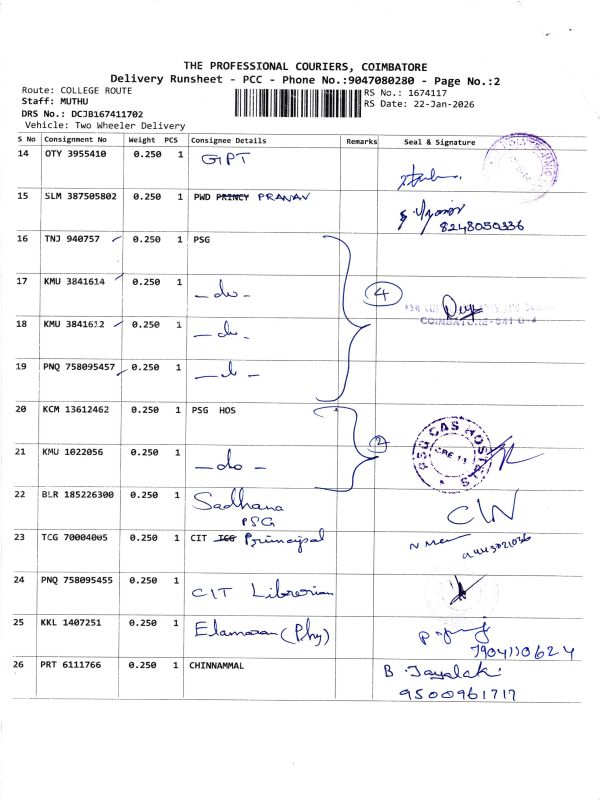 THE PROFESSIONAL COURIERS, COIMBATORE
Delivery Runsheet - PCC - Phone No.:9047080280 - Page No.:2
Route: COLLEGE ROUTE
Staff: MUTHU
DRS No.: DCJB167411702
Vehicle: Two Wheeler Delivery
RS No.: 1674117
RS Date: 22-Jan-2026
S No Consignment No Weight PCS Consignee Details Remarks Seal & Signature
14 OTY 3955410 0.250 1 GPT
15 SLM 387505802 0.250 1 PWD PRINCY PRANAV
8248050336
16 TNJ 940757 0.250 1 PSG
17 KMU 3841614 0.250 1 -do- 4
18 KMU 3841612 0.250 1 -do-
COIMBATORE-641 014
19 PNQ 758095457 0.250 1 -do-
20 KCM 13612462 0.250 1 PSG HOS
21 KMU 1022056 0.250 1 -do- 2
PSG CAS HOSPITALS
22 BLR 185226300 0.250 1 Sadhana
PSG
23 TCG 70004005 0.250 1 CIT Principal
24 PNQ 758095455 0.250 1 CIT Librarian
25 KKL 1407251 0.250 1 Elamaran (Phy)
7904110624
26 PRT 6111766 0.250 1 CHINNAMMAL B. Jayalaki
9500961717